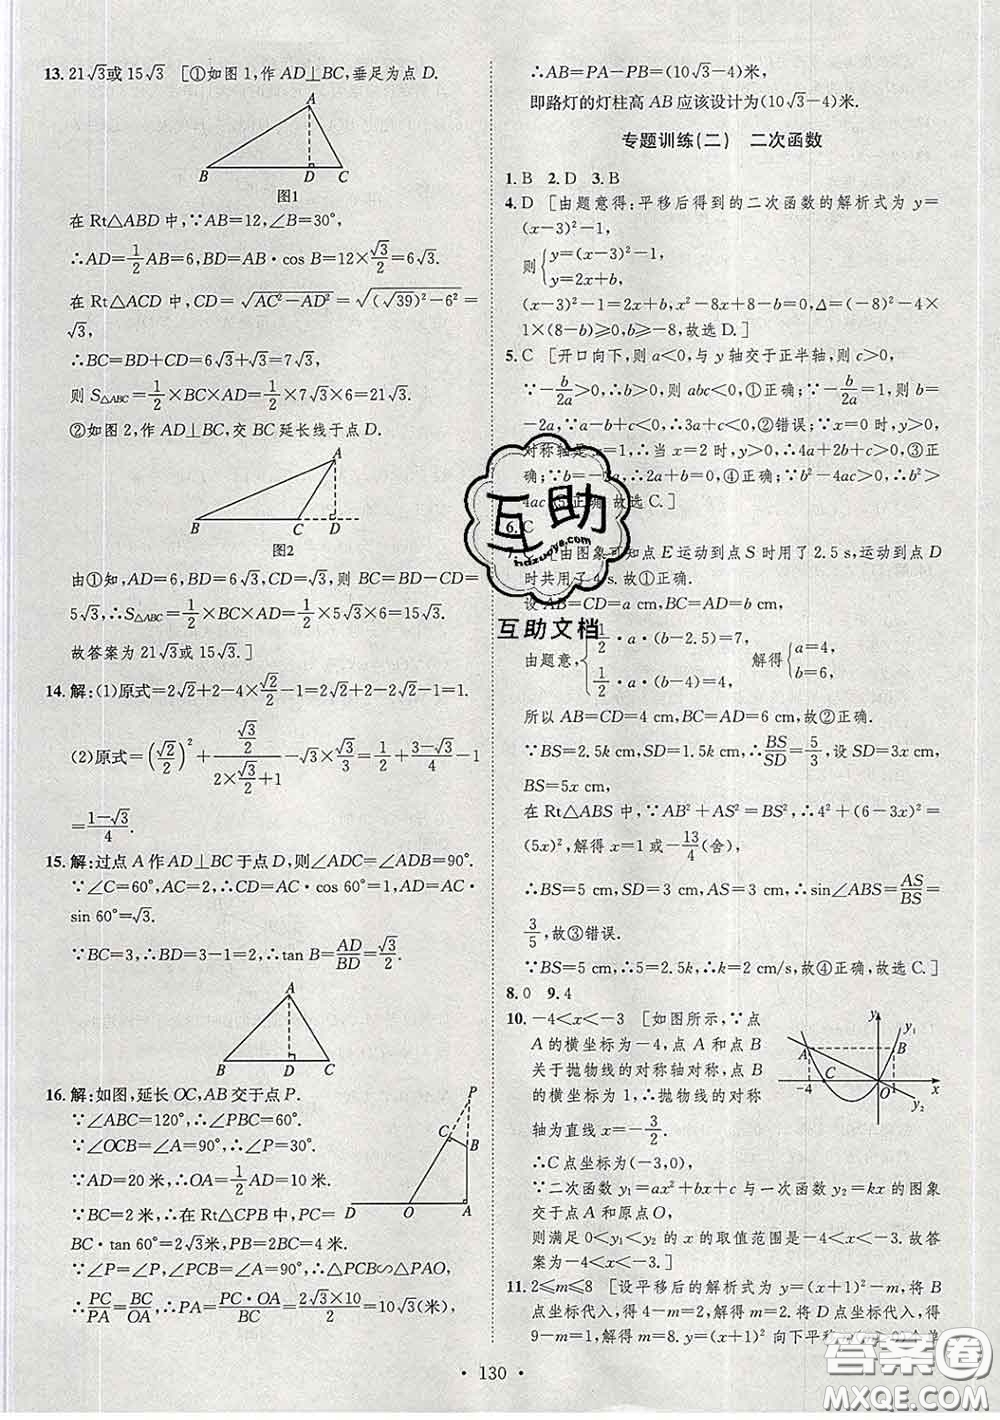 13. 21√3或15√3 [①如图1,作AD⊥BC,垂足为点D.
A
B
D
C
图1
在Rt△ABD中,∵AB=12,∠B=30°,
∴AD=1/2AB=6,BD=AB·cos B=12×√3/2=6√3.
在Rt△ACD中,CD=√(AC²-AD²)=√((√39)²-6²)=
√3,
∴BC=BD+CD=6√3+√3=7√3,
则S△ABC=1/2×BC×AD=1/2×7√3×6=21√3;
②如图2,作AD⊥BC,交BC延长线于点D.
A
B
C
D
图2
由①知,AD=6,BD=6√3,CD=√3,则BC=BD-CD=
5√3,∴S△ABC=1/2×BC×AD=1/2×5√3×6=15√3.
故答案为21√3或15√3.]
14.解:(1)原式=2√2+2-4×√2/2-1=2√2+2-2√2-1=1.
(2)原式=(√2/2)²+(√3/2)/(2×√3/2+1)-√3×√3/3=1/2+(3-√3)/4-1
=(1-√3)/4.
15.解:过点A作AD⊥BC于点D,则∠ADC=∠ADB=90°.
∵∠C=60°,AC=2,∴CD=AC·cos 60°=1,AD=AC·
sin 60°=√3.
∵BC=3,∴BD=3-1=2,∴tan B=AD/BD=√3/2.
A
B
D
C
16.解:如图,延长OC,AB交于点P.
∵∠ABC=120°,∴∠PBC=60°.
∵∠OCB=∠A=90°,∴∠P=30°.
∵AD=20米,∴OA=1/2AD=10米.
∵BC=2米,∴在Rt△CPB中,PC=
BC·tan 60°=2√3米,PB=2BC=4米.
P
C
B
D
O
A
∵∠P=∠P,∠PCB=∠A=90°,∴△PCB∽△PAO,
∴PC/PA=BC/OA,∴PA=PC·OA/BC=2√3×10/2=10√3(米),
∴AB=PA-PB=(10√3-4)米,
即路灯的灯柱高AB应该设计为(10√3-4)米.
专题训练(二) 二次函数
1. B 2. D 3. B
4. D [由题意得:平移后得到的二次函数的解析式为y=
(x-3)²-1,
则{y=(x-3)²-1,
y=2x+b,
(x-3)²-1=2x+b,x²-8x+8-b=0,Δ=(-8)²-4×
1×(8-b)≥0,b≥-8,故选D.]
5. C [开口向下,则a<0,与y轴交于正半轴,则c>0,
∵-b/2a>0,∴b>0,则abc<0,①正确;∵-b/2a=1,则b=
-2a,∵a-b+c<0,∴3a+c<0,②错误;∵x=0时,y>0,
对称轴是x=1,∴当x=2时,y>0,∴4a+2b+c>0,③正
确;∵b=-2a,∴2a+b=0,④正确;∵b²-4ac>0,∴b²>
4ac,⑤正确,故选C.]
6. C
[由图象可知点E运动到点S时用了2.5 s,运动到点D
时共用了4 s.故①正确.
设AB=CD=a cm,BC=AD=b cm,
由题意,{1/2·a·(b-2.5)=7,
1/2·a·(b-4)=4,
解得{a=4,
b=6,
所以AB=CD=4 cm,BC=AD=6 cm,故②正确.
∵BS=2.5k cm,SD=1.5k cm,∴BS/SD=5/3,设SD=3x cm,
BS=5x cm,
在Rt△ABS中,∵AB²+AS²=BS²,∴4²+(6-3x)²=
(5x)²,解得x=1或-13/4(舍),
∴BS=5 cm,SD=3 cm,AS=3 cm,∴sin∠ABS=AS/BS=
3/5,故③错误.
∵BS=5 cm,∴5=2.5k,∴k=2 cm/s,故④正确,故选C.]
8. 0 9. 4
10. -4<x<-3 [如图所示,∵点
A的横坐标为-4,点A和点B
关于抛物线的对称轴对称,点B
横坐标为1,∴抛物线的对称
轴为直线x=-3/2.
∴C点坐标为(-3,0),
y
y₁
A
B
C
-4
O
1
x
y₂
∵二次函数y₁=ax²+bx+c与一次函数y₂=kx的图象
交于点A和原点O,
则满足0<y₁<y₂的x的取值范围是-4<x<-3.故答
案为-4<x<-3.]
11. 2≤m≤8 [设平移后的解析式为y=(x+1)²-m,将B
点坐标代入,得4-m=2,解得m=2.将D点坐标代入,得
9-m=1,解得m=8.y=(x+1)²向下平移
• 130 •
互助
hdzuoye.com
互助文档
答案圈
MXQE.COM